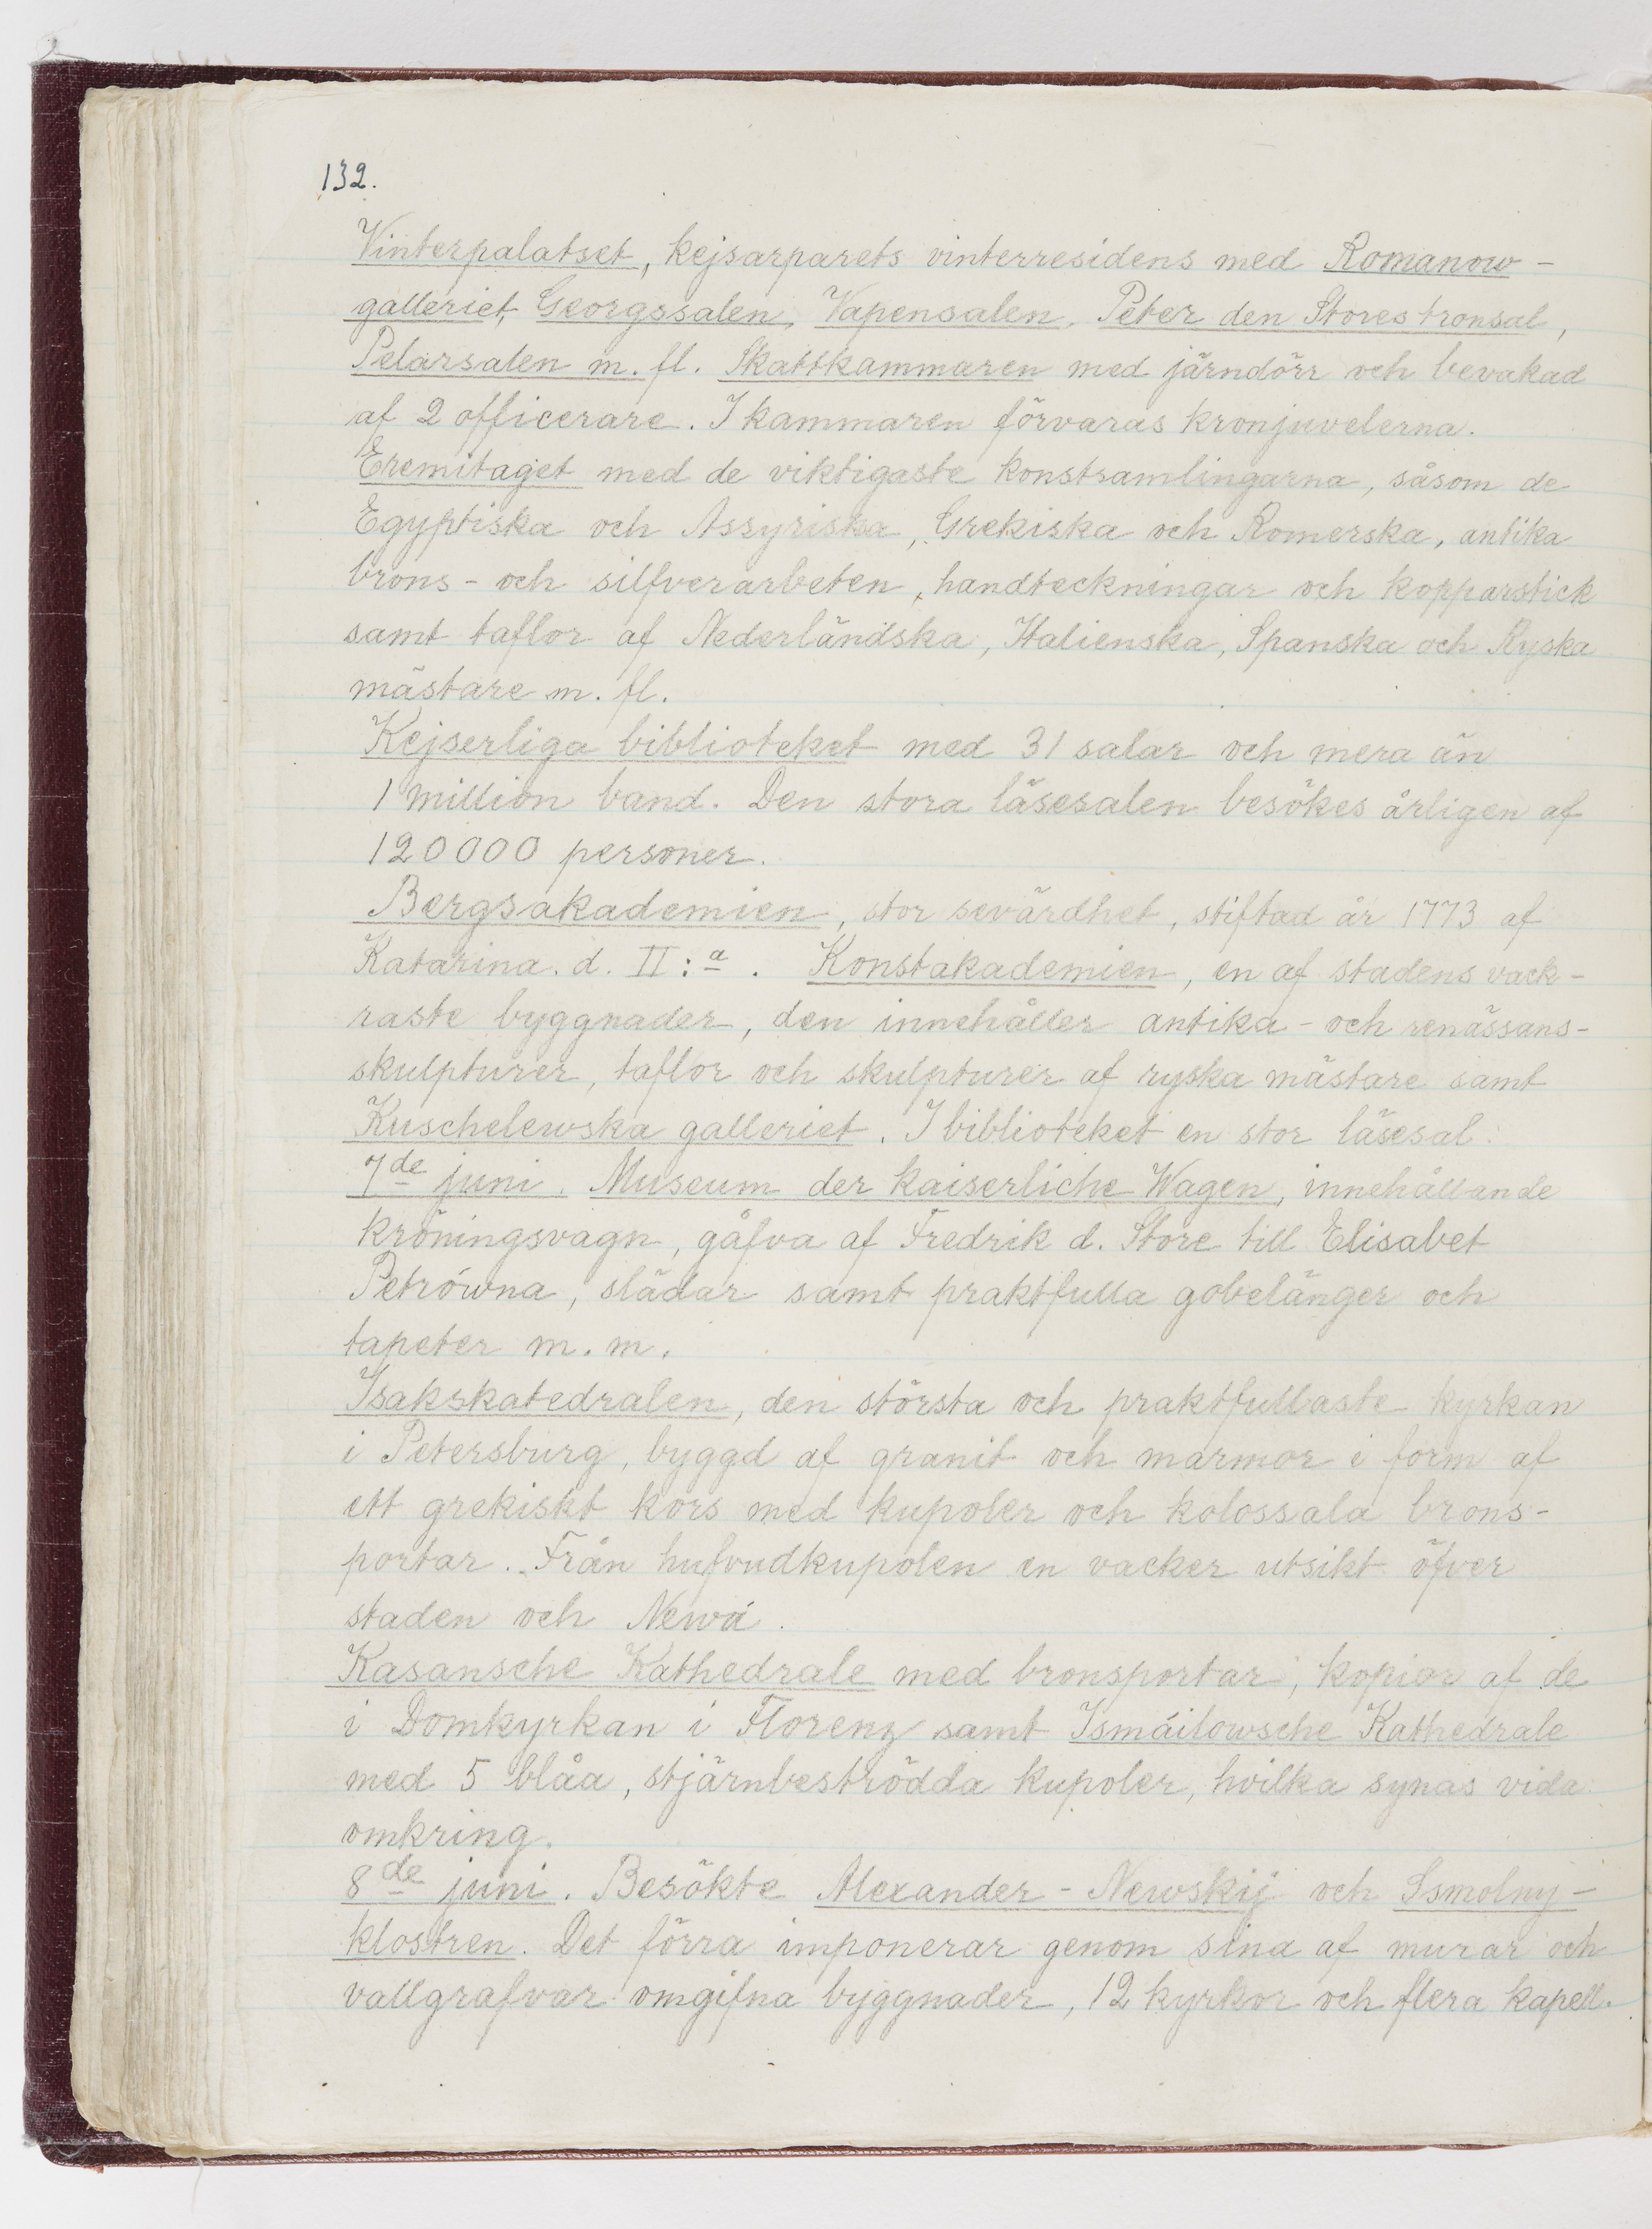 132.
Vinterpalatset, kejsarparets vinterresidens med Romanow-
galleriet, Georgssalen, Vapensalen, Peter den Stores tronsal,
Pelarsalen m. fl. Skattkammaren med järndörr och bevakad
af 2 officerare. I kammaren förvaras kronjuvelerna.
Eremitaget med de viktigaste konstsamlingarna, såsom de
Egyptiska och Assyriska, Grekiska och Romerska, antika
brons- och silfverarbeten, handteckningar och kopparstick
samt taflor af Nederländska, Italienska, Spanska och Ryska
mästare m. fl.
Kejserliga biblioteket med 31 salar och mera än
1 million band. Den stora läsesalen besökes årligen af
120000 personer.
Bergsakademien, stor sevärdhet, stiftad år 1773 af
Katarina. d. II:a. Konstakademien, en af stadens vack-
raste byggnader, den innehåller antika- och renässans-
skulpturer, taflor och skulpturer af ryska mästare samt
Kuschelewska galleriet. I biblioteket en stor läsesal.
7de juni. Museum der kaiserliche Wagen, innehållande
kröningsvagn, gåfva af Fredrik d. Store till Elisabet
Petrówna, slädar samt praktfulla gobelänger och
tapeter m. m.
Isakskatedralen, den största och praktfullaste kyrkan
i Petersburg, byggd af granit och marmor i form af
ett grekiskt kors med kupoler och kolossala brons-
portar. Från hufvudkupolen en vacker utsikt öfver
staden och Newá.
Kasansche Kathedrale med bronsportar, kopior af de
i Domkyrkan i Florenz samt Ismáilowsche Kathedrale
med 5 blåa, stjärnbeströdda kupoler, hvilka synas vida
omkring.
8de juni. Besökte Alexander-Newskij och Ssmolny-
klostren. Det förra imponerar genom sina af murar och
vallgrafvar omgifna byggnader, 12 kyrkor och flera kapell.